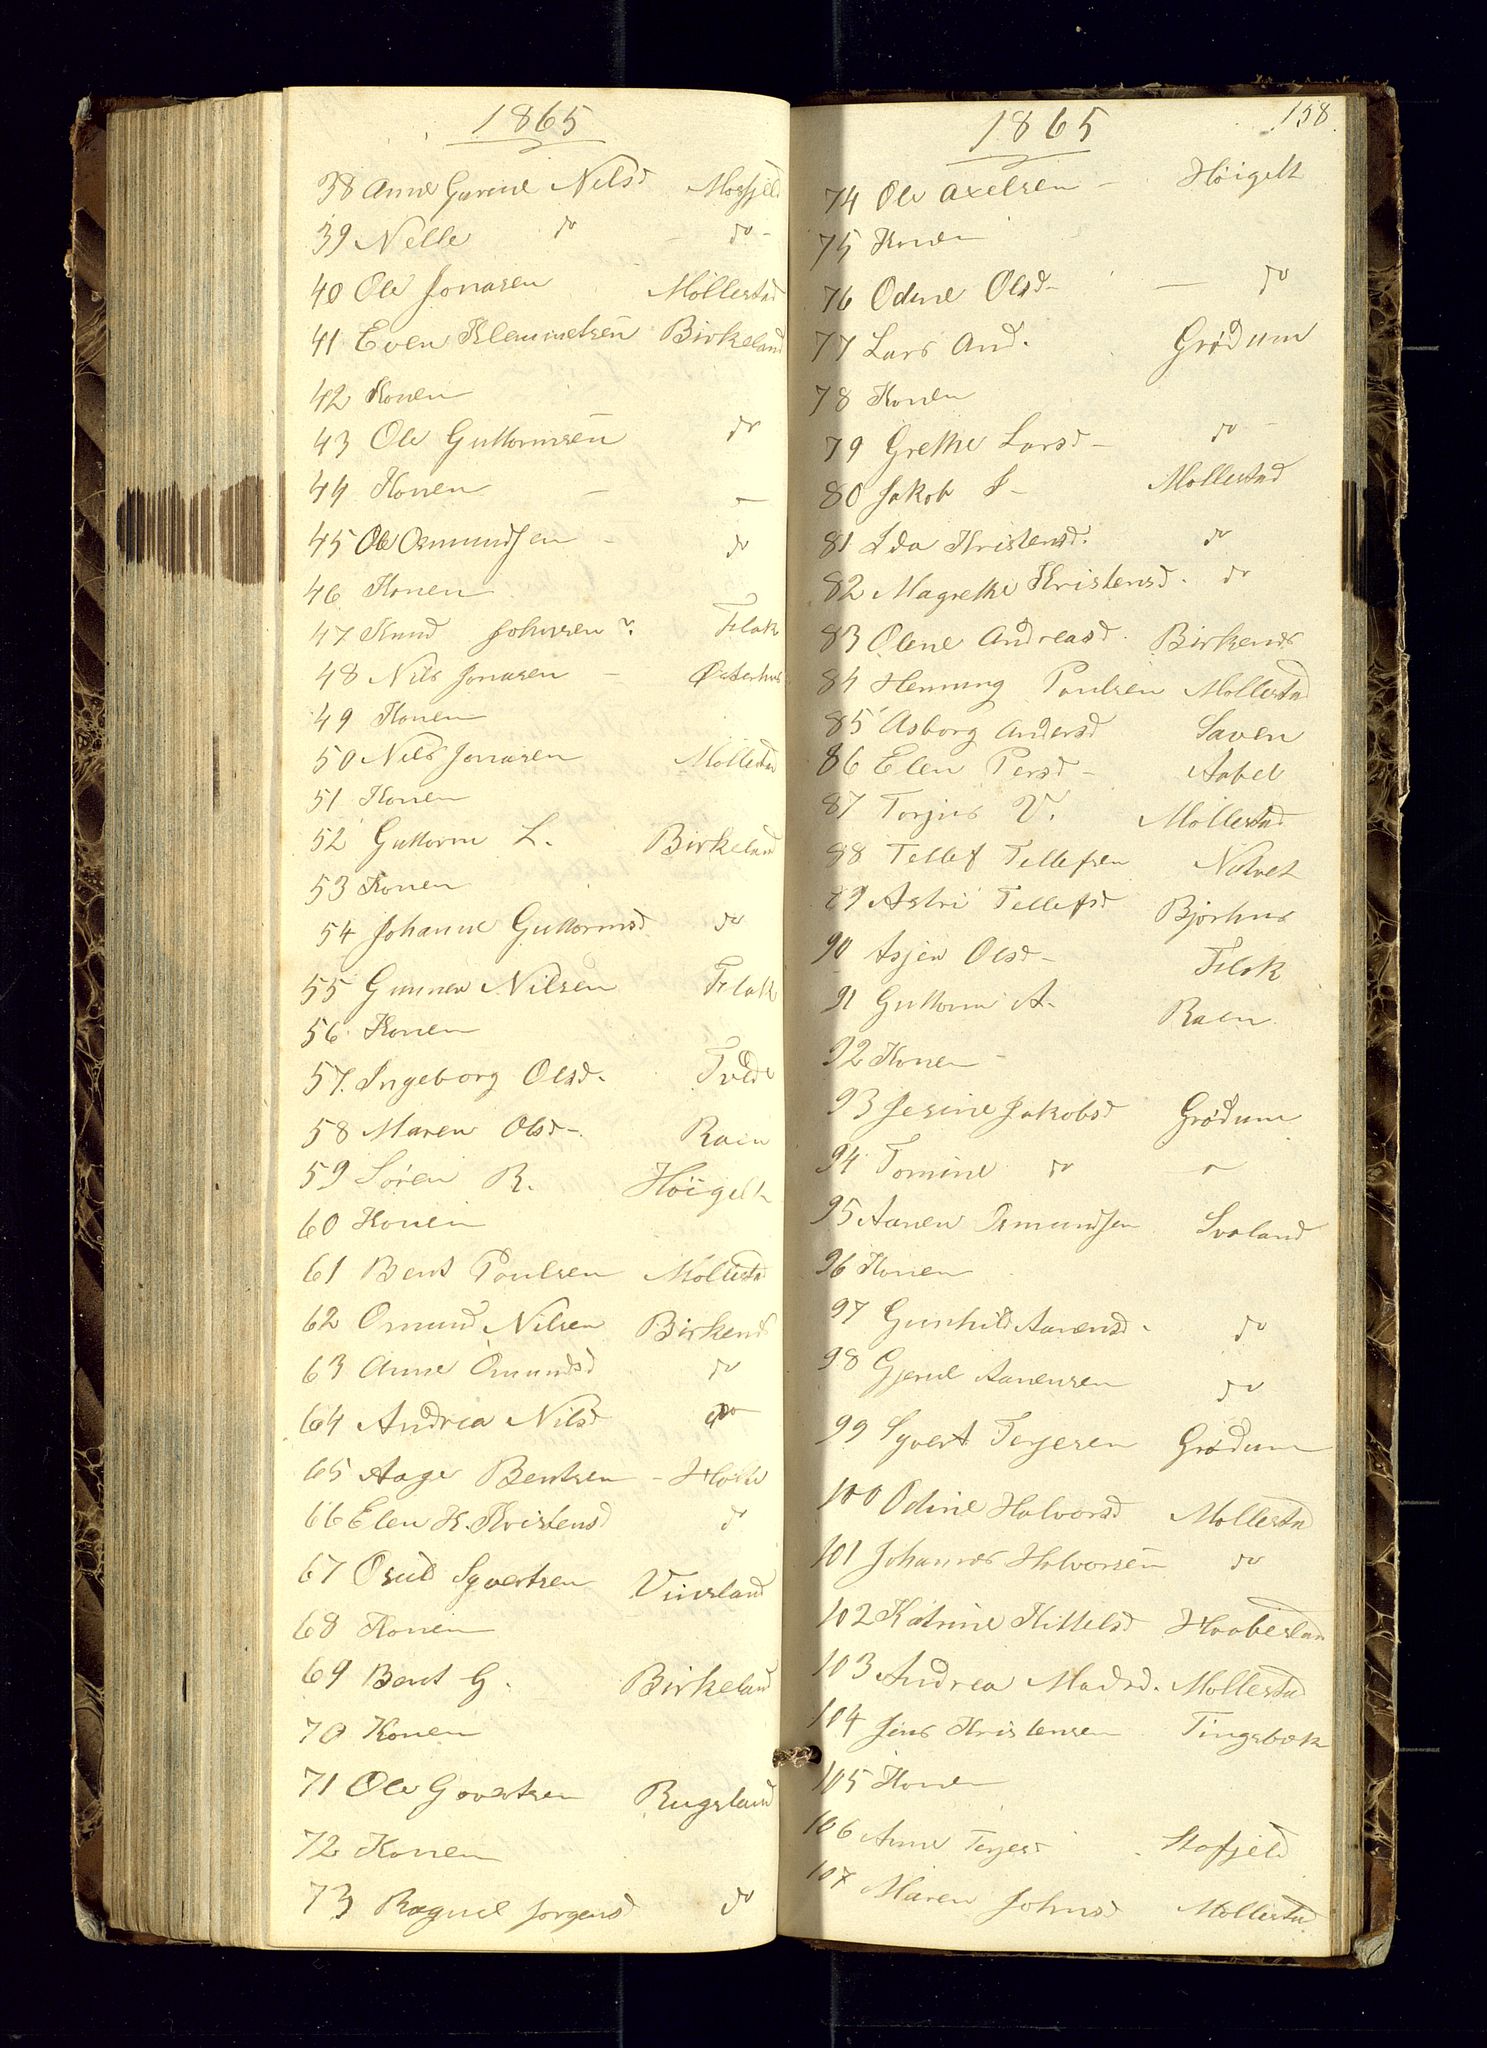 1865
38 Anne Gurine Nilsd Mosfjeld
39 Nelle do - do -
40 Ole Jonasen Möllestad
41 Even Klemmetsen Birkeland
42 Konen
43 Ole Guttormsen do
44 Konen - -
45 Ole Osmundsen - do
46 Konen
47 Knud Johnsen Flak
48 Nils Jonasen - Østerhus
49 Konen
50 Nils Jonasen Möllestad
51 Konen
52 Guttorm L. Birkeland
53 Konen
54 Johanne Guttormsd do
55 Gunner Nilsen Flak
56 Konen
57. Ingeborg Olsd. Tvede
58 Maren Olsd-. Raen
59 Søren R. Höigelt
60 Konen
61 Bent Poulsen Möllestad
62 Osmund Nilsen Birkenes
63 Anne Osmundsd do
64 Andrea Nilsd do
65 Aage Bentsen - Holte
66 Elen K. Kristensd d
67 Osuld Syvertsen Vinsland
68 Konen
69 Bent G. Birkeland
70 Konen
71 Ole Govertsen Rugsland
72 Konen
73 Ragnil Jørgensd do
158.
1865
74 Ole Axelsen - Höigelt
75 Konen
76 Odine Olsd- - do
77 Lars And. Grødum
78 Konen
79 Grethe Larsd- do -
80 Jakob J - Mollestad
81 Ida Kristensd. do
82 Magrethe Kristensd. do
83 Olene Andreasd. Birkenes
84 Henning Poulsen Mollestad
85 Asborg Andersd Saven
86 Elen Persd- Aabel
87 Torjus V. Mollestad
88 Tellef Tellefsen Natvet
89 Astri Tellefsd Bjorhus
90 Asjer Olsd- Flak
91 Guttorm A- Raen
92 Konen -
93 Jesine Jakobsd Grødum
94 Tomine do -
95 Aanen Osmundsen Svaland
96 Konen
97 Gunhild Aanensd. do
98 Gjerul Aanensen do
99 Syvert Terjesen Grødum
100 Odine Halvorsd Mollestad
101 Johannes Halvorsen do
102 Katrine Kittelsd Haabestad
103 Andrea Madsd. Mollestad
104 Jens Kristensen Tingsbæk
105 Konen
106 Anne Terjesd Stofjeld
107 Maren Johnsd Mollestad